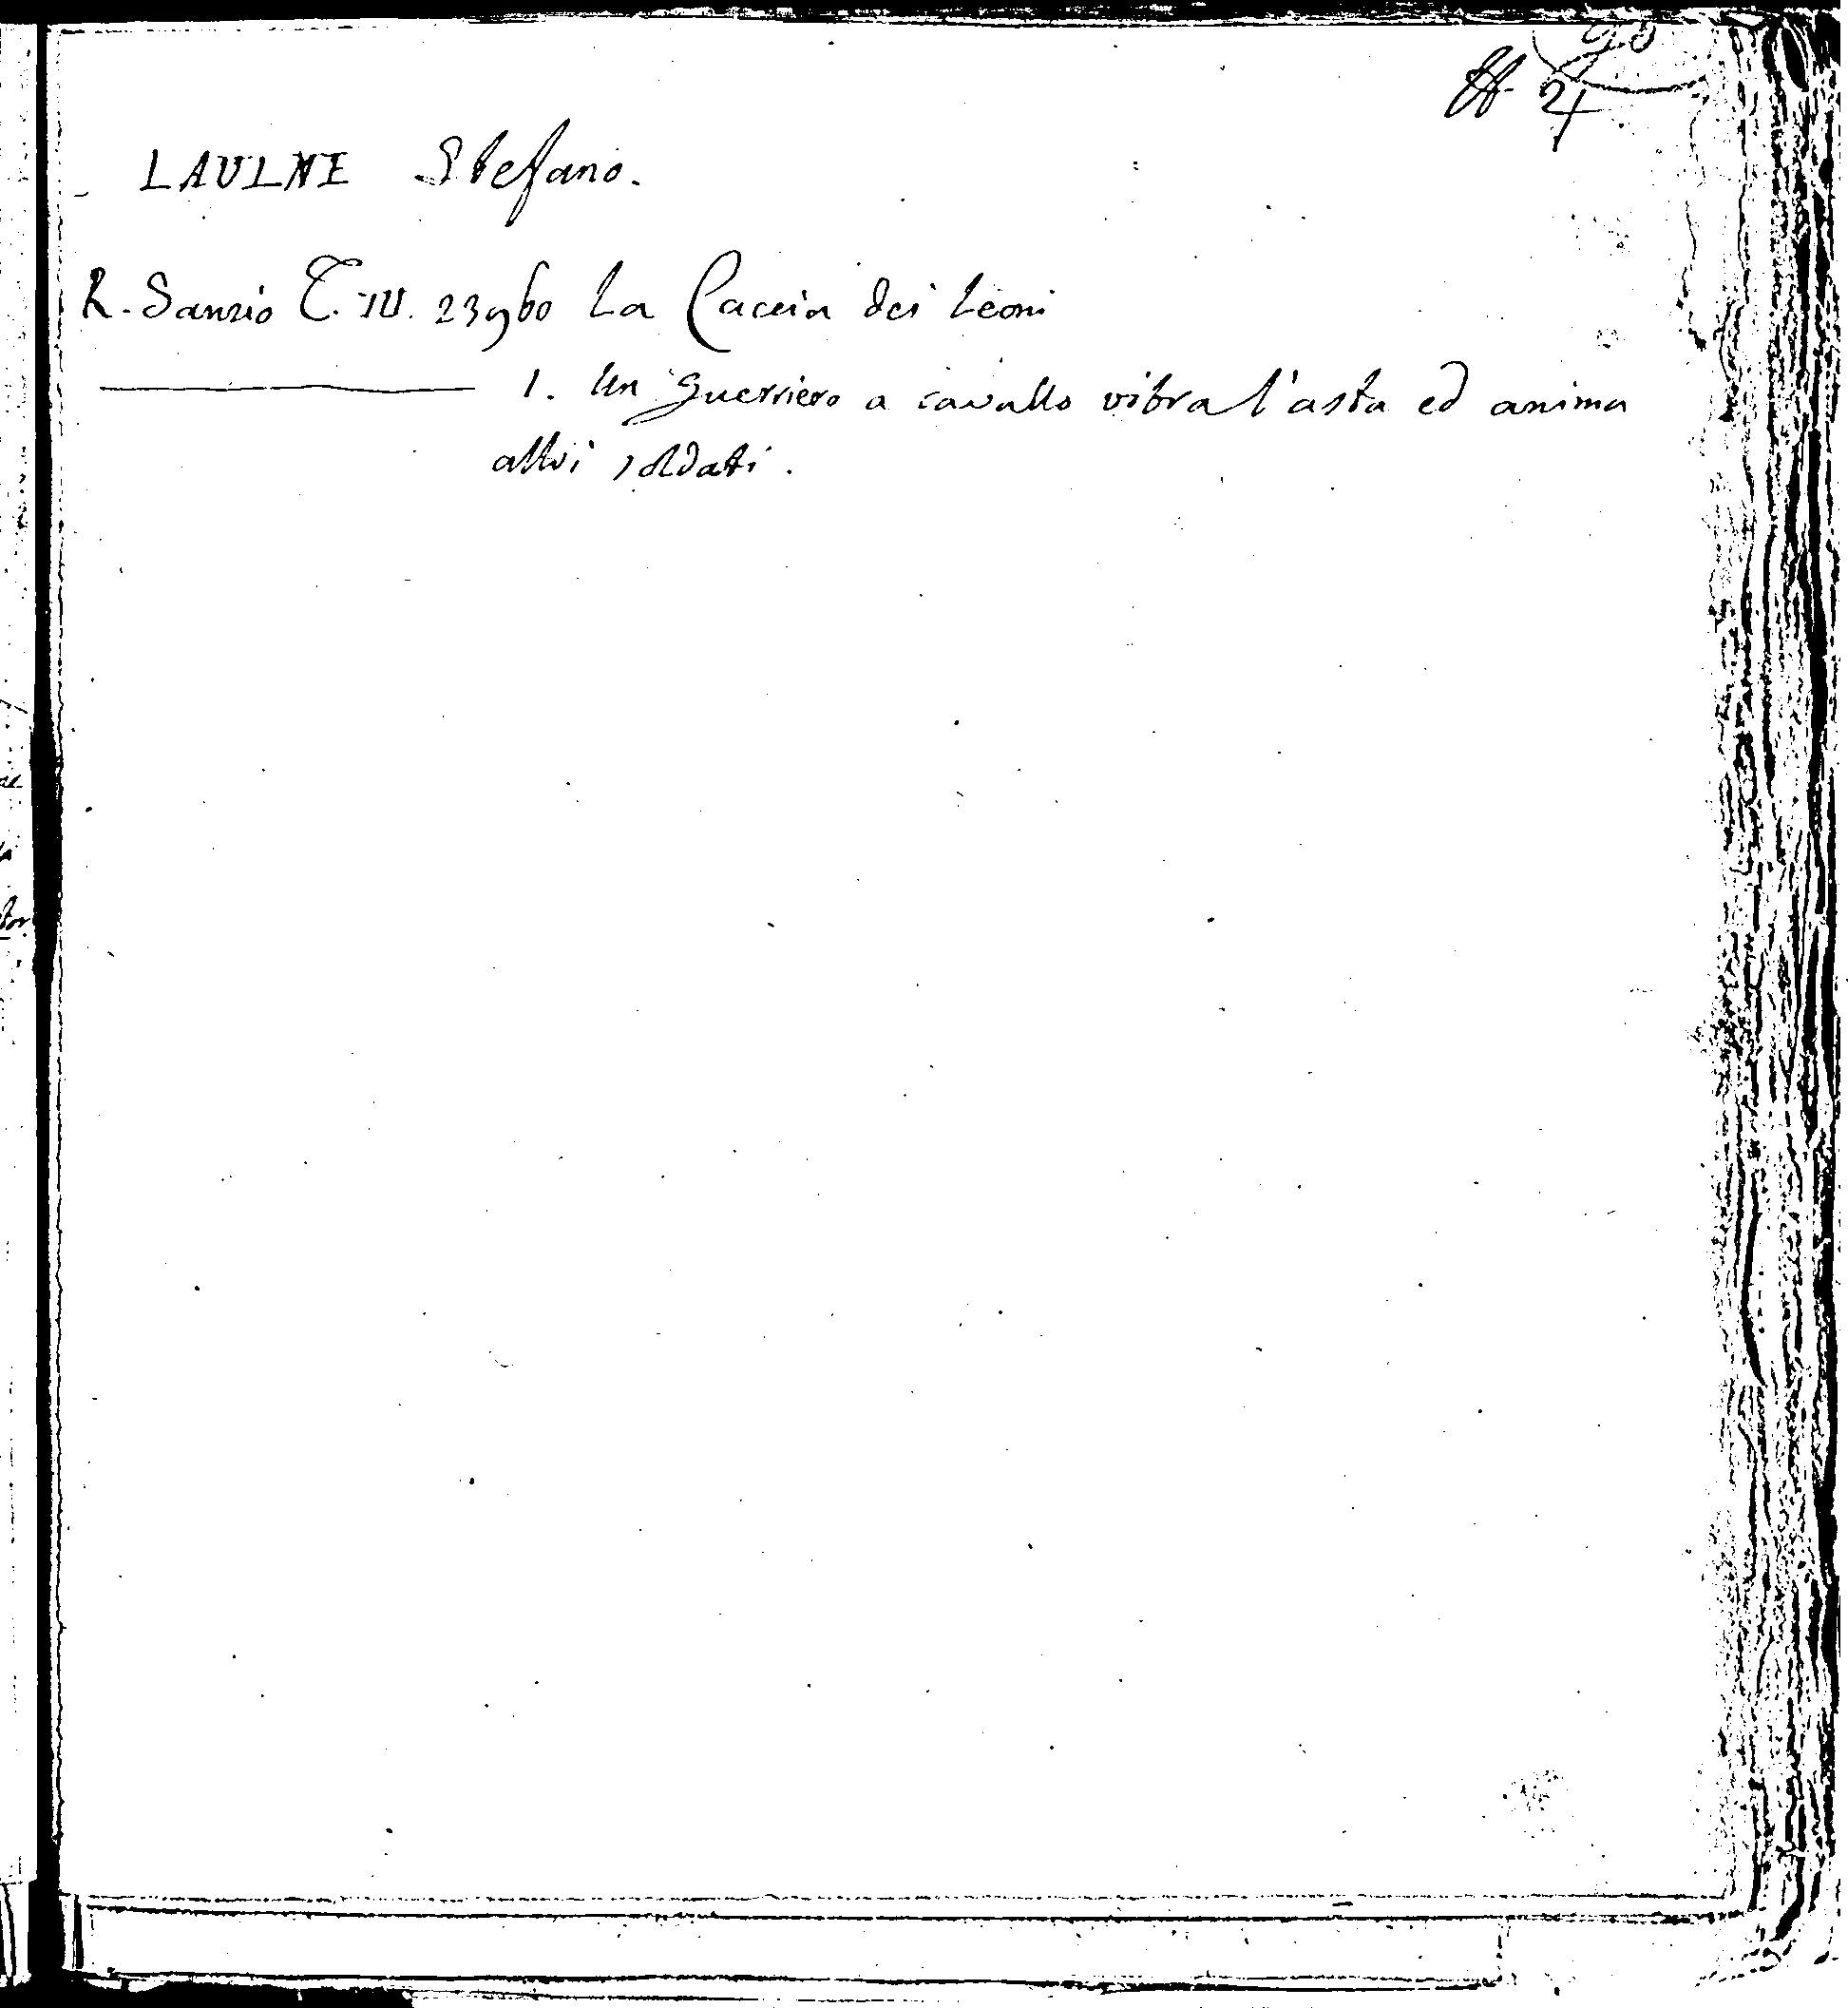 LAULNE Stefano.
R. Sanzio T. IV. 23960 La Caccia dei Leoni
1. Un guerriero a cavallo vibra l'asta ed anima
altri soldati.